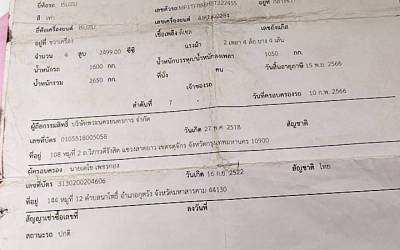 ยี่ห้อรถ ISUZU
สี เทา เลขเครื่องยนต์
ยี่ห้อเครื่องยนต์ ISUZU
อยู่ที่ ขวาเครื่อง เชื้อเพลิง ดีเซล
จำนวน 4 สูบ 2499.00 ซีซี แรงม้า 2 เพลา 4 ล้อ ยาง 4 เส้น
น้ำหนักรถ 1600 กก. น้ำหนักบรรทุก/น้ำหนักลงเพลา 1050 กก.
น้ำหนักรวม 2650 กก. ที่นั่ง คน วันสิ้นอายุภาษี 15 พ.ย. 2566
เจ้าของรถ
ลำดับที่ 7 วันที่ครอบครองรถ 10 ก.พ. 2566
ผู้ถือกรรมสิทธิ์ บริษัทพรอนครยนตรการ จำกัด
เลขที่บัตร 0105518005058 วันเกิด 27 พ.ค. 2518 สัญชาติ
ที่อยู่ 108 หมู่ที่ 2 ถ.วิภาวดีรังสิต แขวงลาดยาว เขตจตุจักร จังหวัดกรุงเทพมหานคร 10900
ผู้ครอบครอง นายเดโช เพชรกอง
เลขที่บัตร 3130200204606 วันเกิด 16 ก.ย. 2522 สัญชาติ ไทย
ที่อยู่ 144 หมู่ที่ 12 ตำบลนาโพธิ์ อำเภอกุดรัง จังหวัดมหาสารคาม 44130
สัญญาเช่าซื้อเลขที่ ลงวันที่
สถานะรถ ปกติ